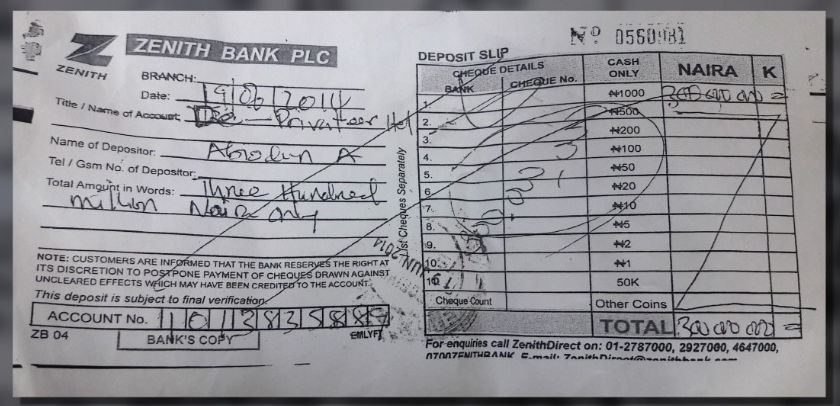 ZENITH BANK PLC
ZENITH
Nº 0560981
DEPOSIT SLIP
BRANCH:
Date: 19/06/2014
Title / Name of Account:
Name of Depositor: Abiodun A
Tel / Gsm No. of Depositor:
Total Amount in Words: Three Hundred
million Naira only
NOTE: CUSTOMERS ARE INFORMED THAT THE BANK RESERVES THE RIGHT AT
ITS DISCRETION TO POSTPONE PAYMENT OF CHEQUES DRAWN AGAINST
UNCLEARED EFFECTS WHICH MAY HAVE BEEN CREDITED TO THE ACCOUNT.
This deposit is subject to final verification
ACCOUNT No.
ZB 04
BANK'S COPY
List Cheques Separately
CHEQUE DETAILS
BANK
CHEQUE No.
CASH
ONLY
NAIRA
K
1. ₦1000 300 000 000 =
2. ₦500
3. ₦200
4. ₦100
5. ₦50
6. ₦20
7. ₦10
8. ₦5
9. ₦2
10. ₦1
50K
Cheque Count
Other Coins
TOTAL 300 000 000 =
JUN 2014
For enquiries call ZenithDirect on: 01-2787000, 2927000, 4647000,
0700ZENITHBANK, E-mail: ZenithDirect@zenithbank.com